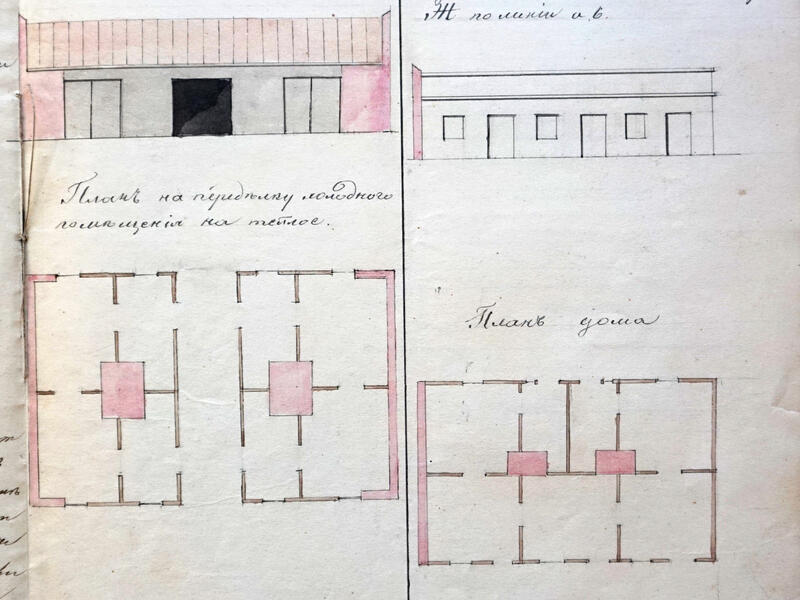 Планъ на передѣлку холоднаго
помѣщенiя на теплое.
Ж по линiи а, б.
Планъ дома